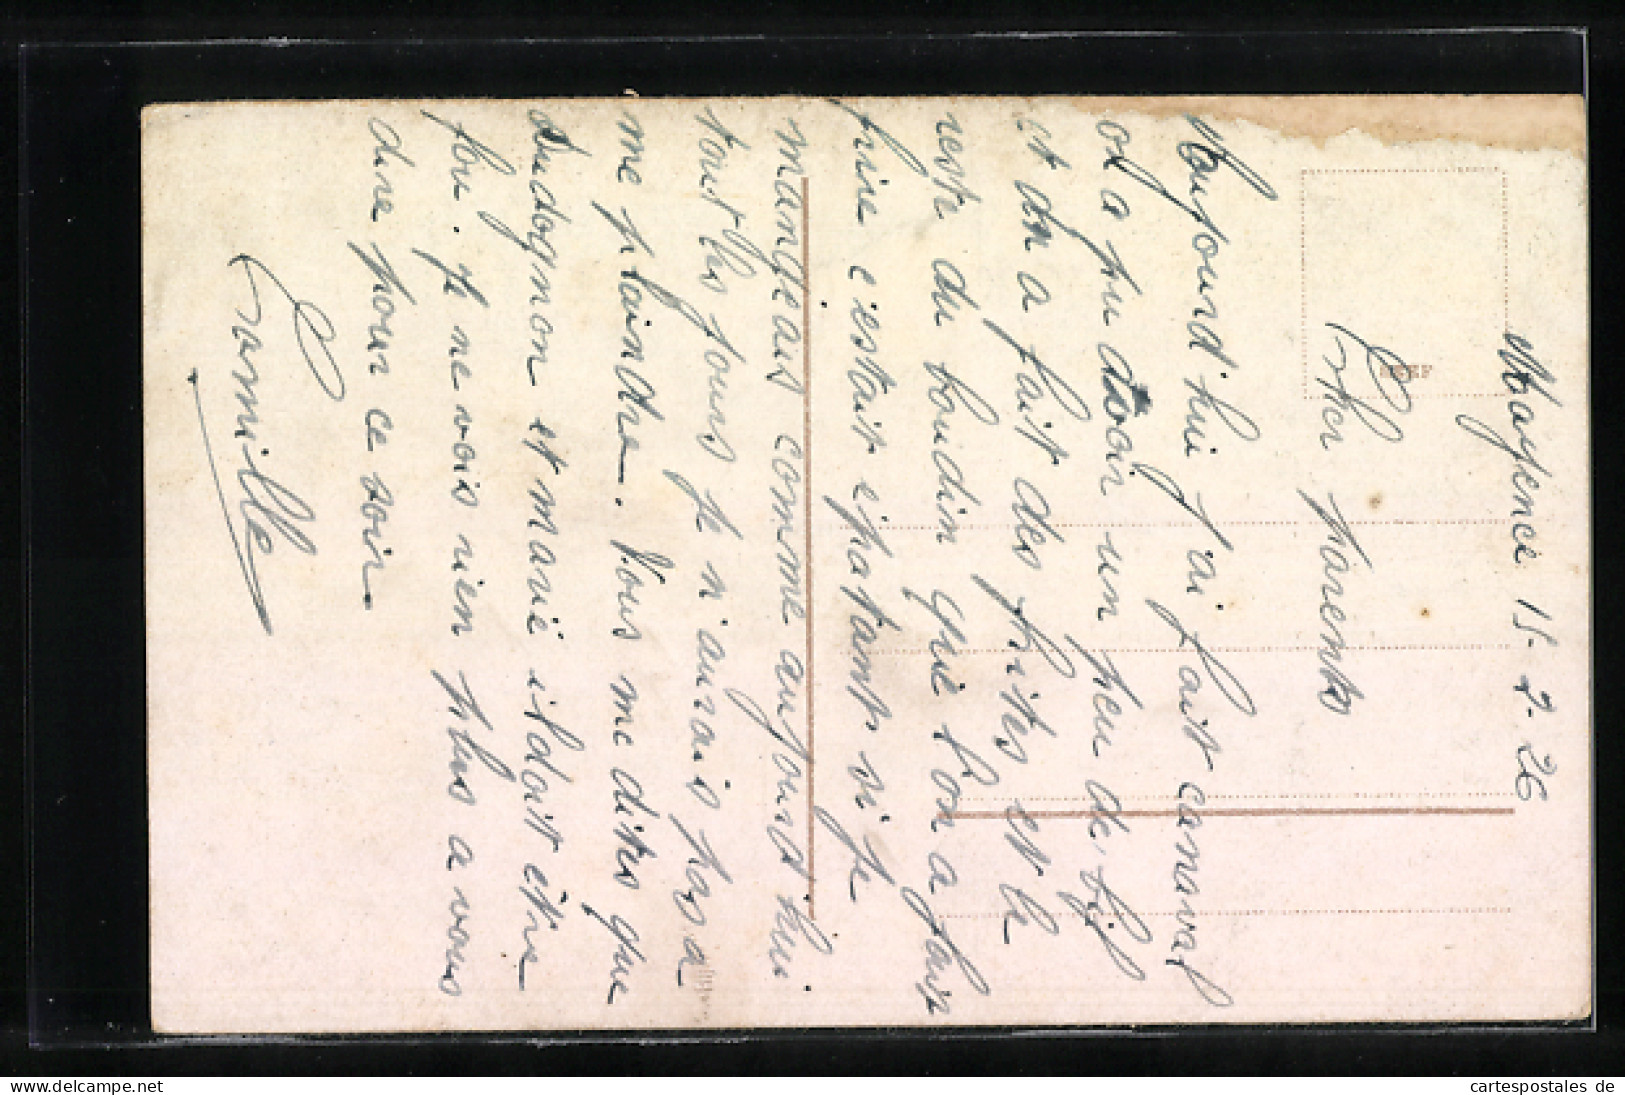 Mayence 15-2-26
Cher parents
Aujourd'hui j'ai fait carnaval
on a pu avoir un peu de
et on a fait des frites et le
reste du boudin que l'on a fais
frire c'estait epatant si je
mangeais comme aujourd'hui
tout les jours je n'aurais pas a
me plaindre. Vous me dites que
Dudognon et marié il doit etre
fou. Je ne vois rien plus a vous
dire pour ce soir
Camille
cartespostales de